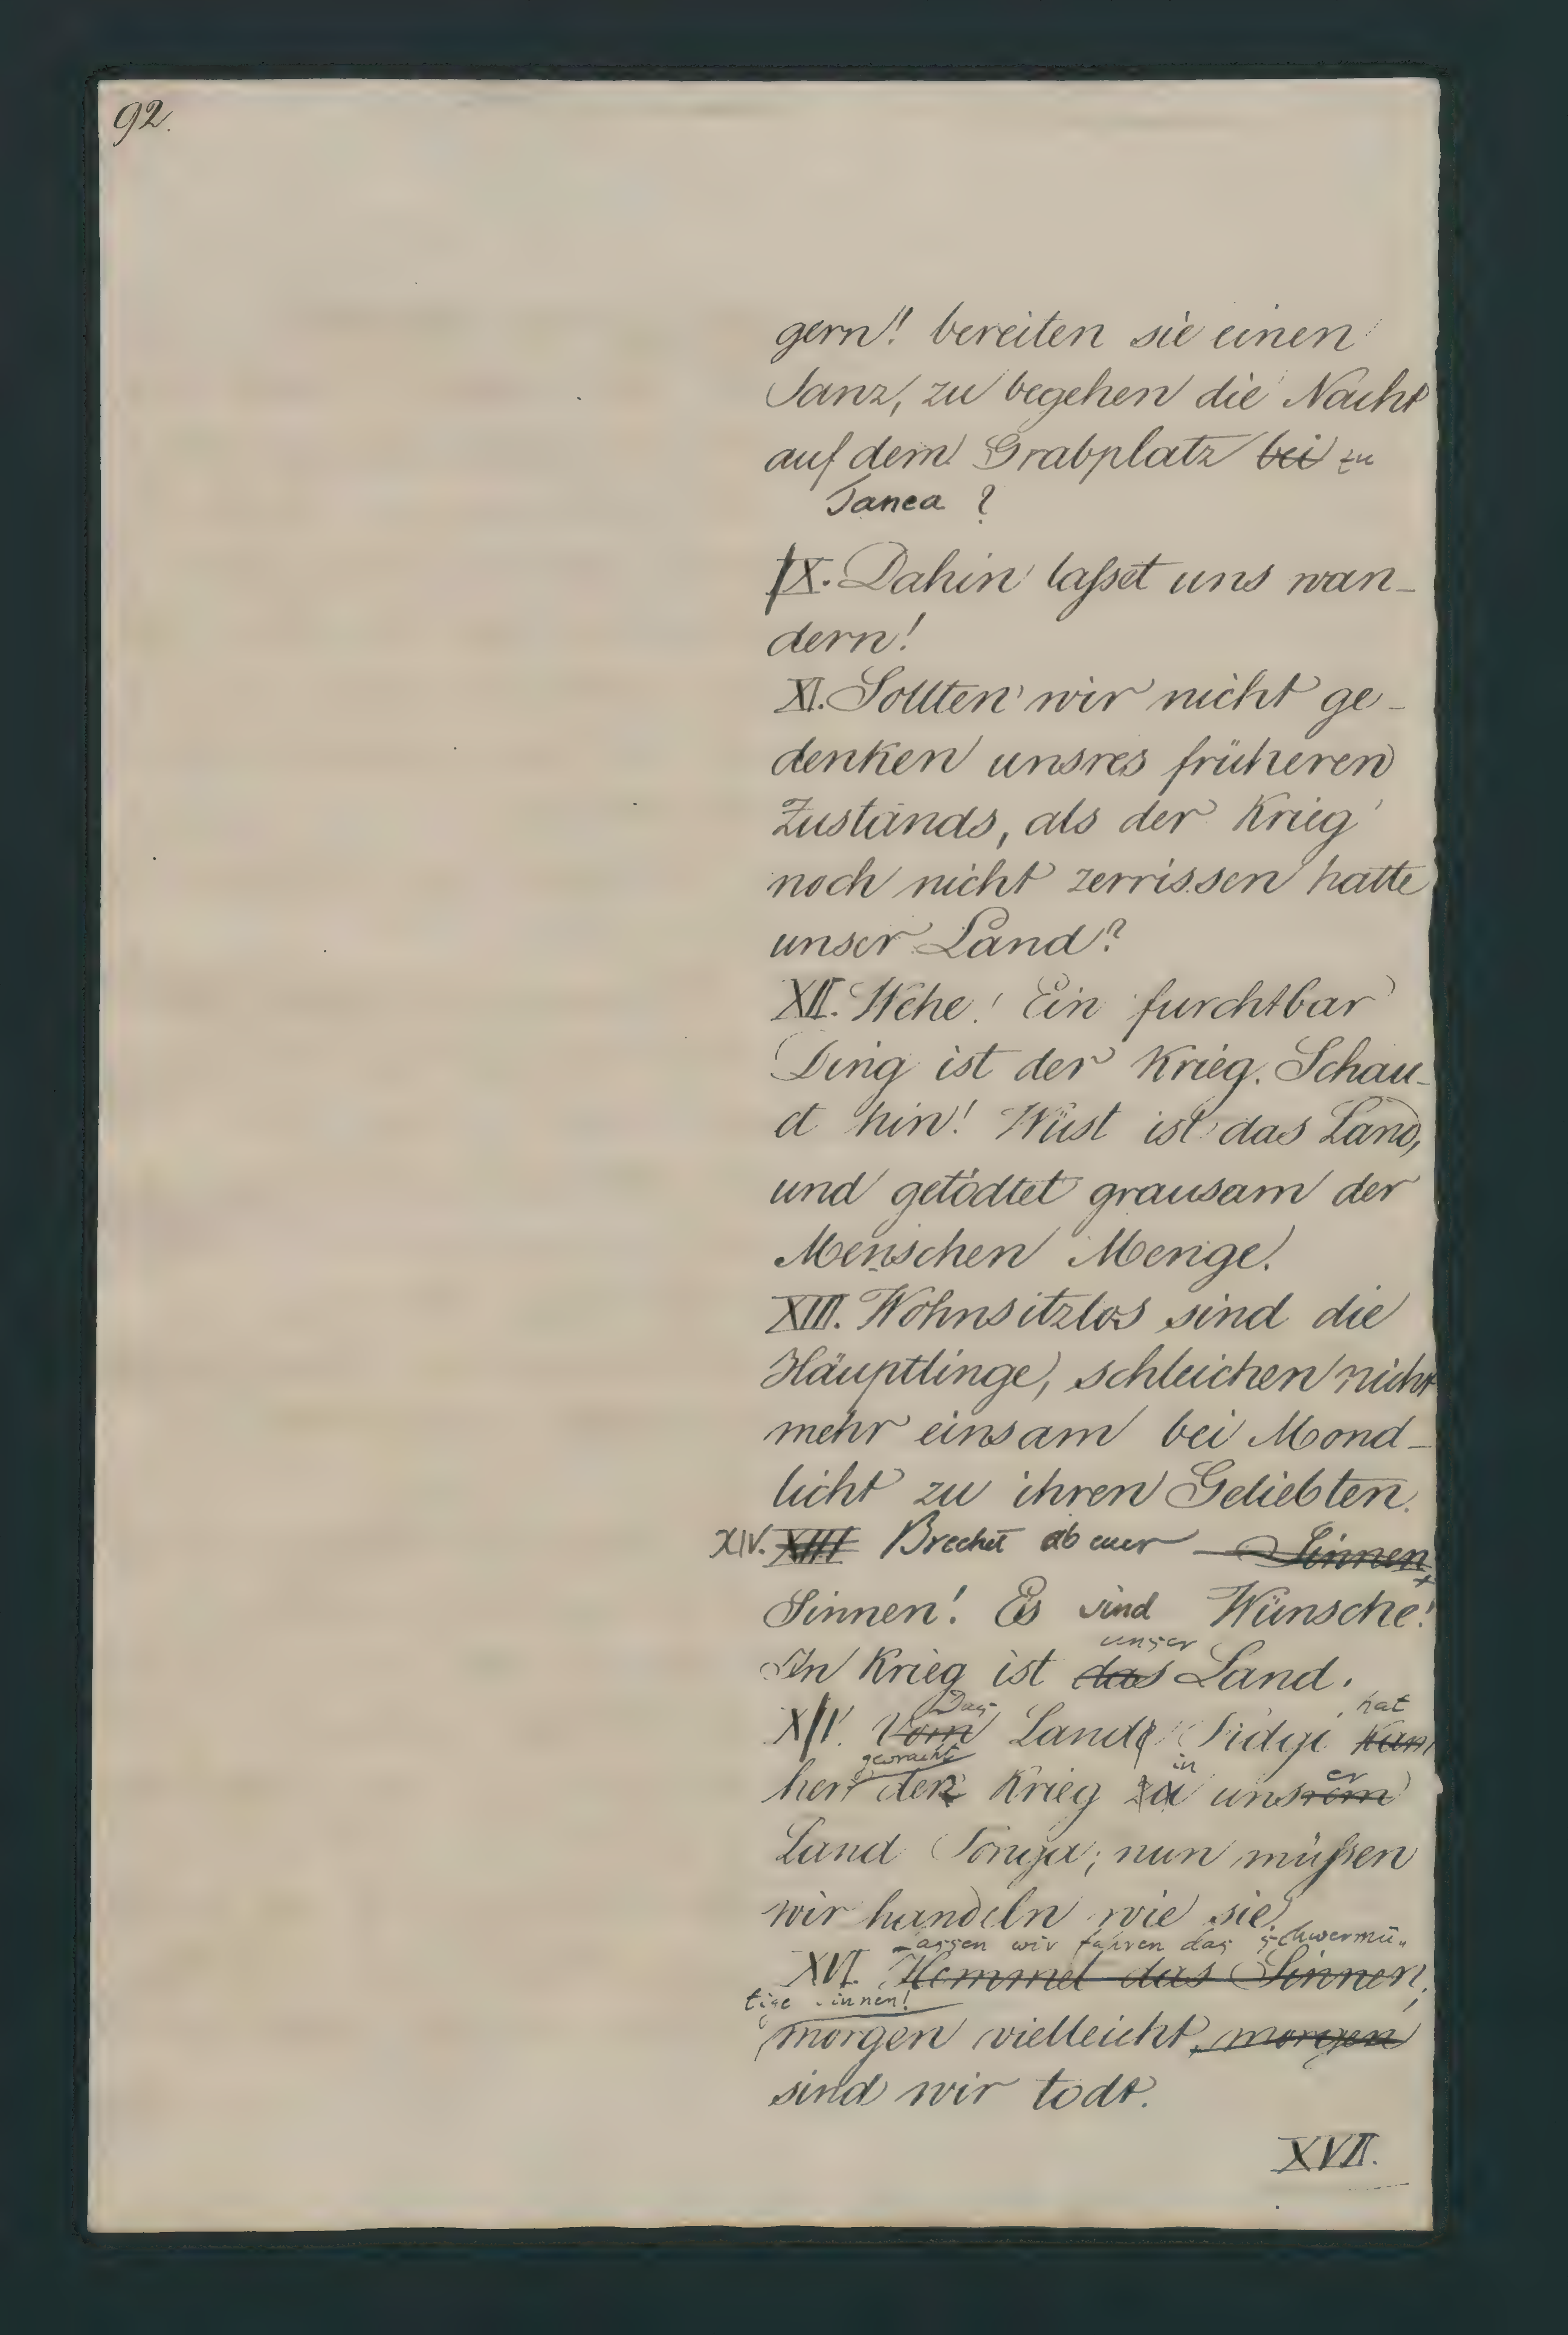 92.
gern! bereiten sie einen
Tanz, zu begehen die Nacht
auf dem Grabplatz bei zu
Tanea ?
IX. Dahin lasset uns wan-
dern!
XI. Sollten wir nicht ge-
denken unsres früheren
Zustands, als der Krieg
noch nicht zerrissen hatte
unser Land?
XII. Wehe! Ein furchtbar
Ding ist der Krieg. Schau-
et hin! Wüst ist das Land,
und getödtet grausam der
Menschen Menge.
XIII. Wohnsitzlos sind die
Häuptlinge, schleichen nicht
mehr einsam bei Mond-
licht zu ihren Geliebten.
XIV. XIII Brechet ab euer Sinnen
Sinnen! Es sind Wünsche!
unser
In Krieg ist das Land.
Das hat
XV. Vom Lande Fidgi kam
gebracht in er
her der Krieg zu unsrem
Land Tonga; nun müssen
wir handeln wie sie.
Lassen wir fahren das schwermü-
XVI. Hemmet das Sinnen,
tige Sinnen!
morgen vielleicht, morgen
sind wir todt.
XVII.